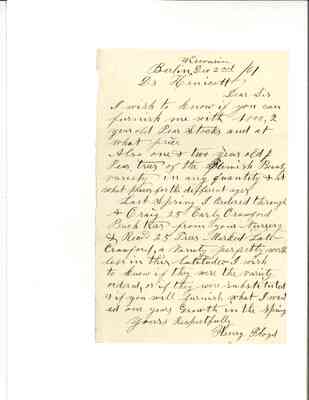 Wisconsin
Berlin, Dec 22nd /61
Dr Kenicott
Dear Sir
I wish to know if you can
furnish one with 1000, 2
year old Pear Stocks and at
what price
Also one & two year old
Pear trees of the Flemish Beauty
variety in any quantity & at
what prices for the different ages
Last Spring I ordered through
Craig 25 Early Crawford
Peach trees from your Nursery
& Recd 25 Trees Marked Late
Crawford, a Variety perfectly worth
less in this Latitude I wish
to know if they were the variety
ordered, or if they were substituted
& if you will furnish what I want
ed one years Growth in the Spring
Yours Respectfully
Henry Floyd